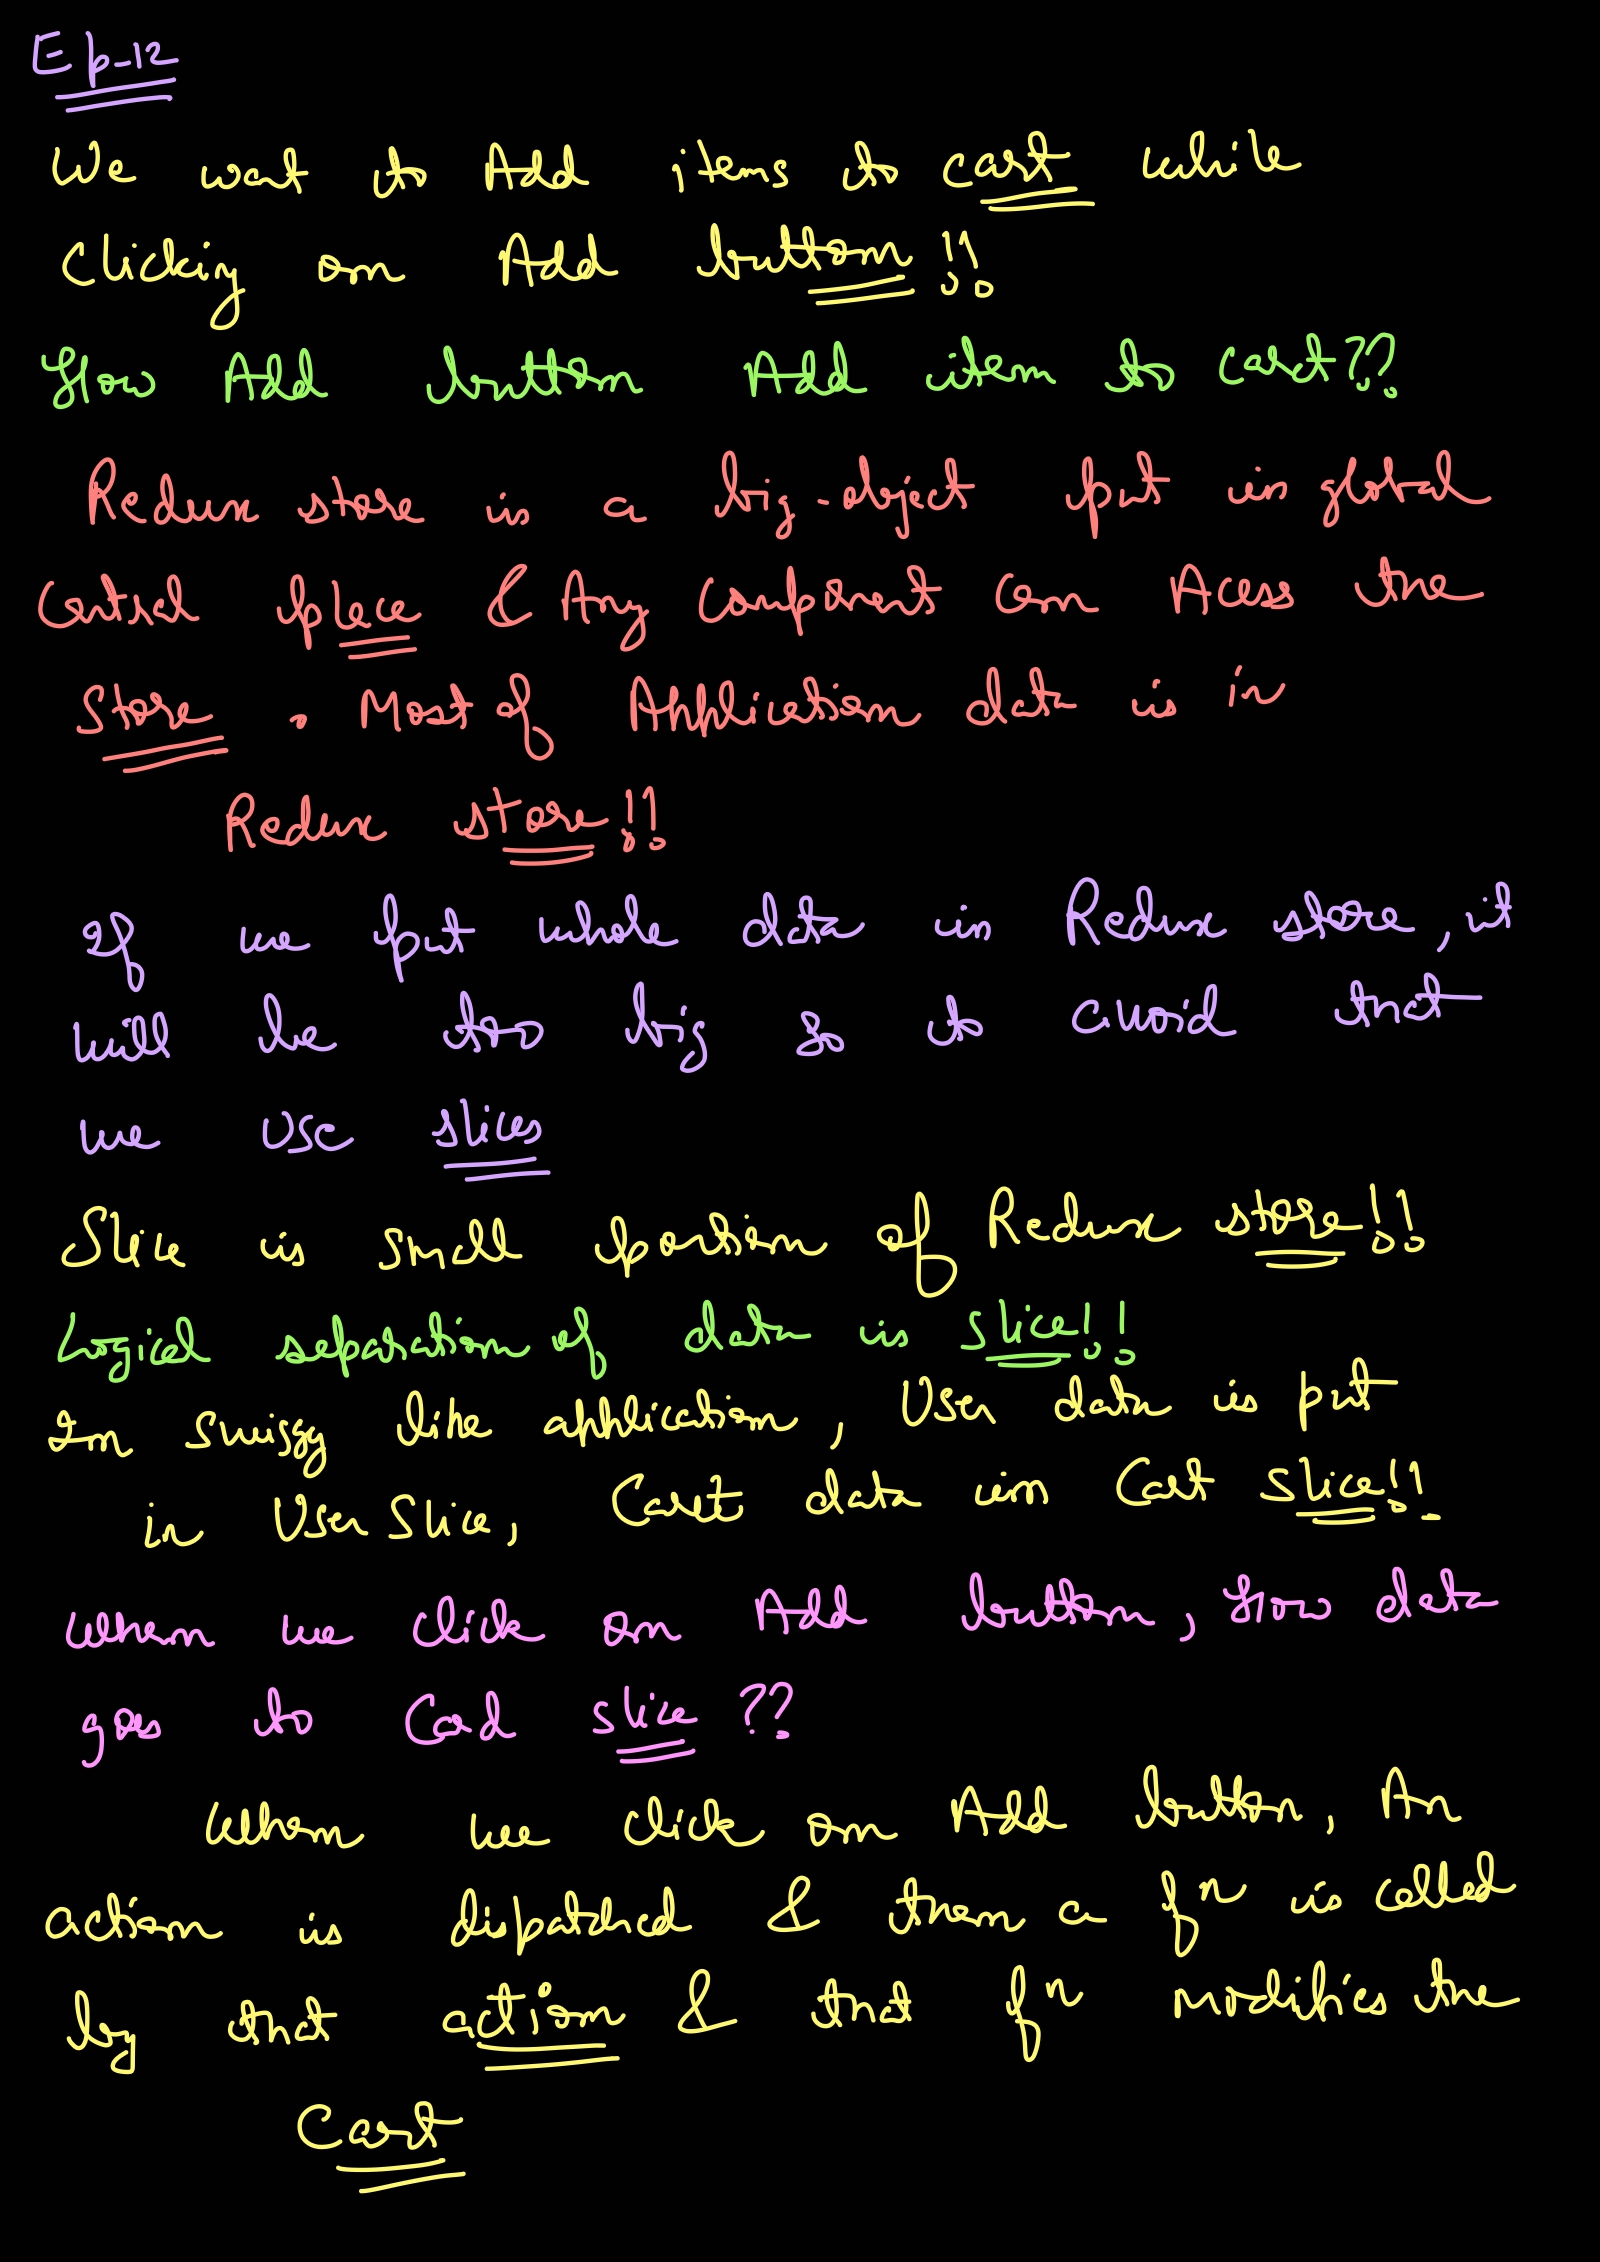 Ep-12
We want to Add items to cart while
Clicking on Add button !!
How Add button Add item to cart??
Redux store is a big-object put in global
Central place & Any Component Can Acess the
Store . Most of Application data is in
Redux store!!
If we put whole data in Redux store, it
will be too big so to avoid that
we use slices
Slice is small portion of Redux store!!
Logical separation of data is slice!!
In swiggy like application, User data is put
in User Slice, Cart data in Cart slice!!
When we click on Add button, How data
goes to Card slice ??
When we click on Add button, An
action is dispatched & then a fⁿ is called
by that action & that fⁿ modifies the
Cart